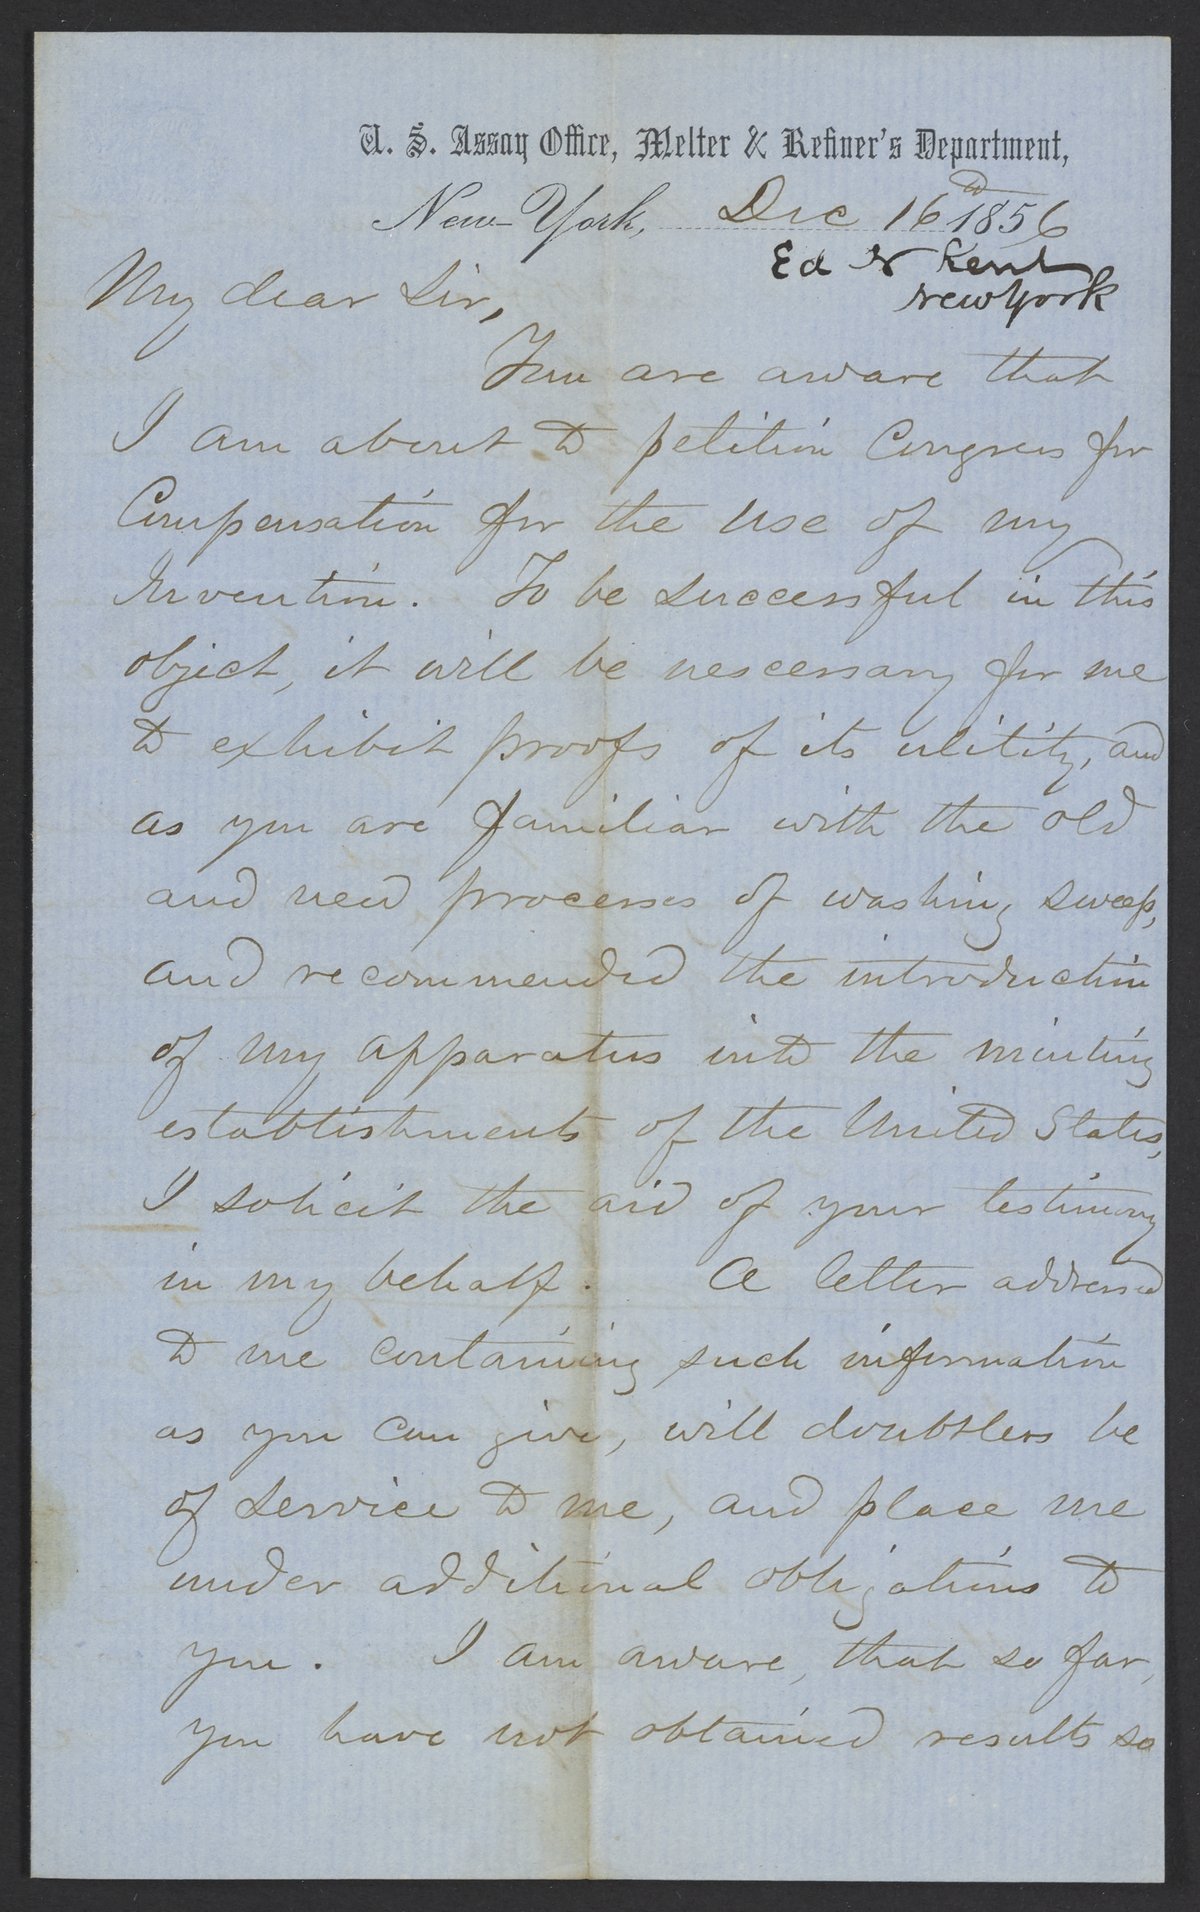 U. S. Assay Office, Melter & Refiner's Department,
New-York, Dec 16th 1856
Ed N Kent
New York
My dear Sir,
You are aware that
I am about to petition Congress for
Compensation for the use of my
Invention. To be successful in this
object, it will be nescessary for me
to exhibit proofs of its utility, and
as you are familiar with the old
and new processes of washing sweep,
and recommended the introduction
of my apparatus into the minting
establishments of the United States,
I solicit the aid of your testimony
in my behalf. A letter addressed
to me containing such information
as you can give, will doubtless be
of service to me, and place me
under additional obligations to
you. I am aware, that so far,
you have not obtained results so